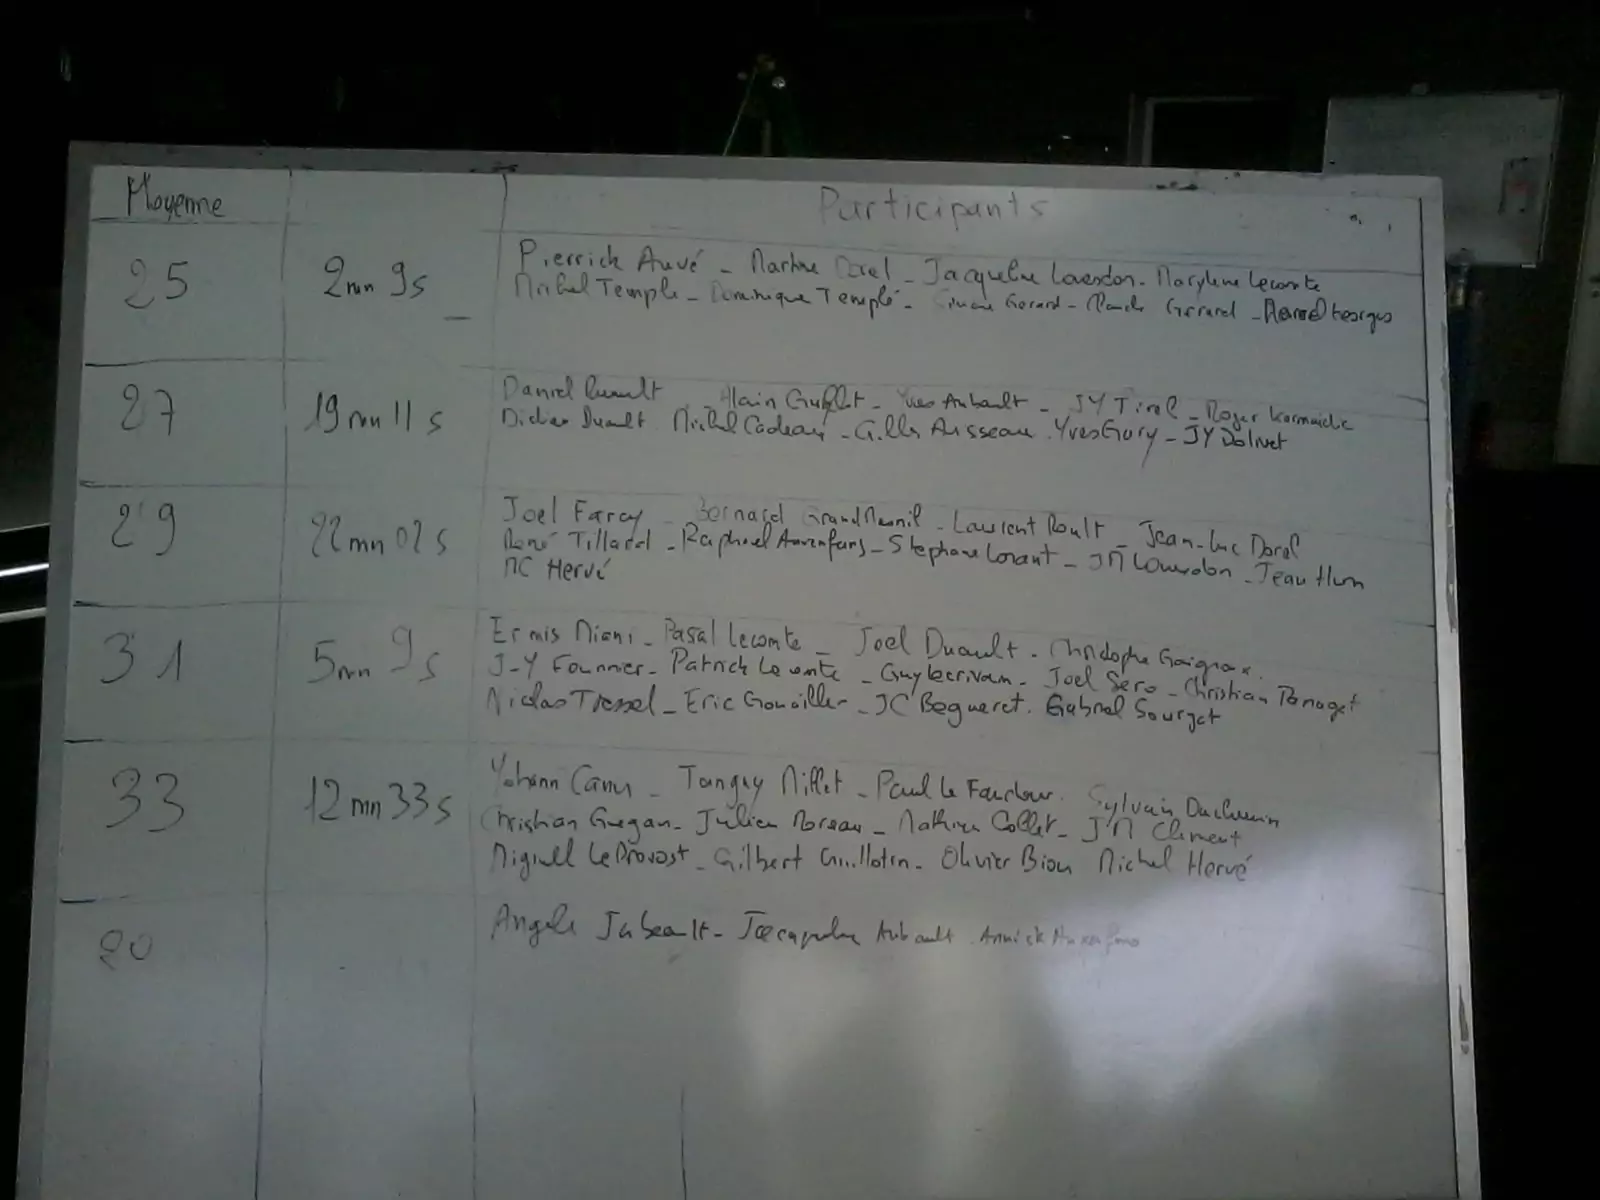 Moyenne Participants
25 2mn 9s Pierrick Auvé - Martine Dorel - Jacqueline Lourdon - Maryline Lecomte
Michel Temple - Dominique Templé - Gerard - Gerard - Georges
27 19mn 11s Daniel - Alain Guillet - Yves Aubault - JY Tirel - Roger
Didier Duault Michel Cadeau - Gilles Aisseau - Yves Gory - JY Dolivet
29 22mn 02s Joel Farcy - Bernard Grand Mesnil - Laurent Roult - Jean-Luc Dorel
René Tillard - Raphael - Stephane Lorant - JM Lourdon - Jean
MC Hervé
31 5mn 9s Ermis Miani - Pasal Lecomte - Joel Duault - Christophe
J-Y Fournier - Patrick Lecomte - Guy Lecrivain - Joel Sero - Christian
Nicolas Tressel - Eric - JC Begueret - Gabriel Sourget
33 12mn 33s Yohann - Tanguy Millet - Paul Le - Sylvain Duchemin
Christian Guegan - Julien Moreau - Mathieu Collet - JM Clement
Miguell Le Provost - Gilbert Guillotin - Olivier Biou Michel Hervé
20 Angele - Jacqueline Aubault - Annick